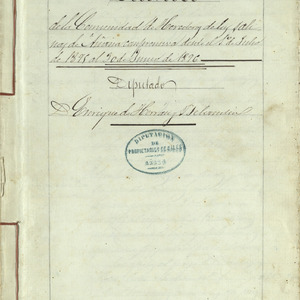 de la Comunidad de Herederos de las Sali
nas de Añana comprensiva desde el 1º de Julio
de 1895 al 30 de Junio de 1896
Diputado
D. Enrique de
DIPUTACION
DE
PROPIETARIOS DE SALINAS
AÑANA